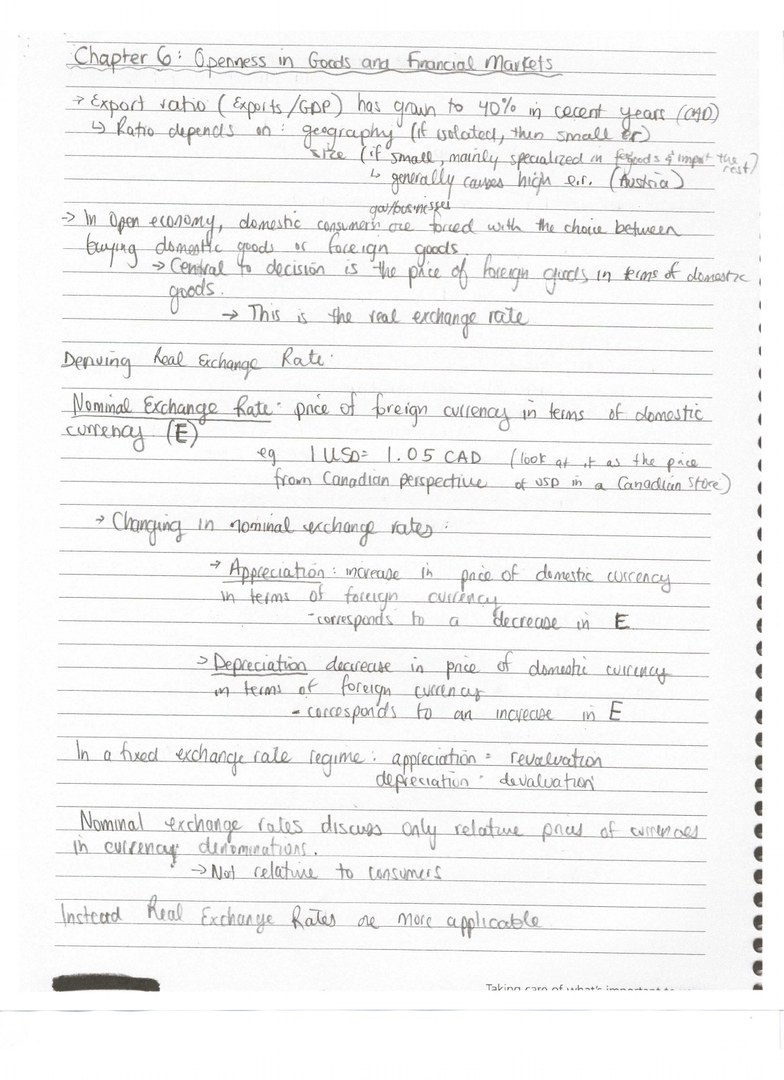 Chapter 6: Openness in Goods and Financial Markets
→ Export ratio (Exports/GDP) has grown to 40% in recent years (CAD)
↳ Ratio depends on: geography (if isolated, then smaller)
size (if small, mainly specialized in few goods & import the rest)
↳ generally causes high e.r. (Austria)
gov/businesses
→ In Open economy, domestic consumers are forced with the choice between
buying domestic goods or foreign goods
→ Central to decision is the price of foreign goods in terms of domestic
goods.
→ This is the real exchange rate
Deriving Real Exchange Rate:
Nominal Exchange Rate: price of foreign currency in terms of domestic
currency (E)
eg 1 USD = 1.05 CAD (look at it as the price
from Canadian perspective of USD in a Canadian Store)
→ Changing in nominal exchange rates:
→ Appreciation: increase in price of domestic currency
in terms of foreign currency
- corresponds to a decrease in E
→ Depreciation decrease in price of domestic currency
in terms of foreign currency
- corresponds to an increase in E
In a fixed exchange rate regime: appreciation = revaluation
depreciation = devaluation
Nominal exchange rates discuss only relative prices of currencies
in currency denominations.
→ Not relative to consumers
Instead Real Exchange Rates are more applicable
Taking care of what's important to